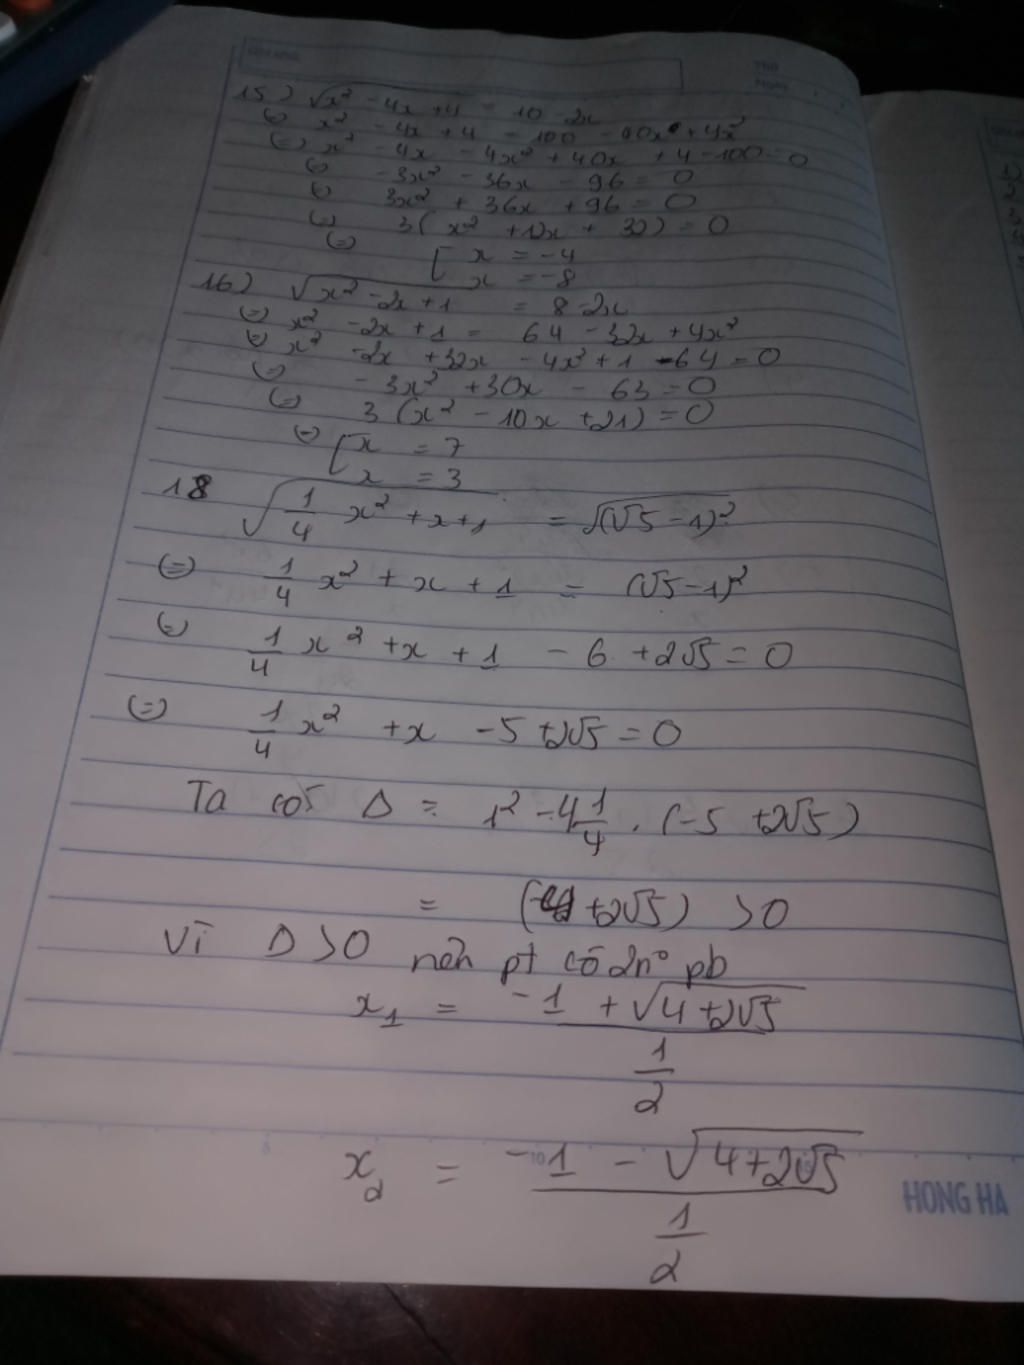 15) √x² - 4x + 4 = 10 - 2x
(=) x² - 4x + 4 = 100 - 40x + 4x²
(=) x² - 4x - 4x² + 40x + 4 - 100 = 0
(=) -3x² - 36x - 96 = 0
(=) 3x² + 36x + 96 = 0
(=) 3(x² + 12x + 32) = 0
(=) [ x = -4
x = -8
16) √x² - 2x + 1 = 8 - 2x
(=) x² - 2x + 1 = 64 - 32x + 4x²
(=) x² - 2x + 32x - 4x² + 1 - 64 = 0
(=) -3x² + 30x - 63 = 0
(=) 3(x² - 10x + 21) = 0
(=) [ x = 7
x = 3
18 √1/4 x² + x + 1 = √(√5 - 1)²
(=) 1/4 x² + x + 1 = (√5 - 1)²
(=) 1/4 x² + x + 1 - 6 + 2√5 = 0
(=) 1/4 x² + x - 5 + 2√5 = 0
Ta có Δ = 1² - 4 1/4 . (-5 + 2√5)
= ( + 2√5) > 0
Vì Δ > 0 nên pt có 2n° pb
x₁ = -1 + √4 + 2√5 / 1/2
x₂ = -1 - √4 + 2√5 / 1/2
HONG HA